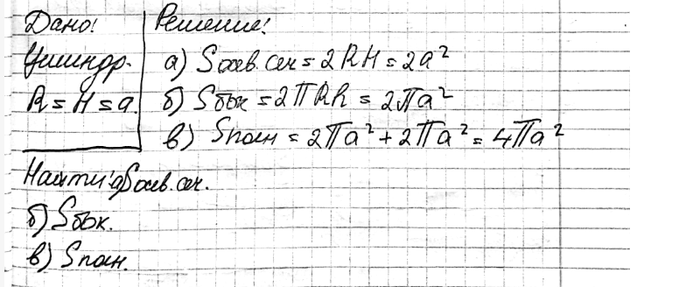 Дано!
Цилиндр.
R = H = a.
Решение!
а) Sосев сеч = 2RH = 2a²
б) Sбок = 2πRh = 2πa²
в) Sполн = 2πa² + 2πa² = 4πa²
Найти: а) Sосев. сеч.
б) Sбок.
в) Sполн.